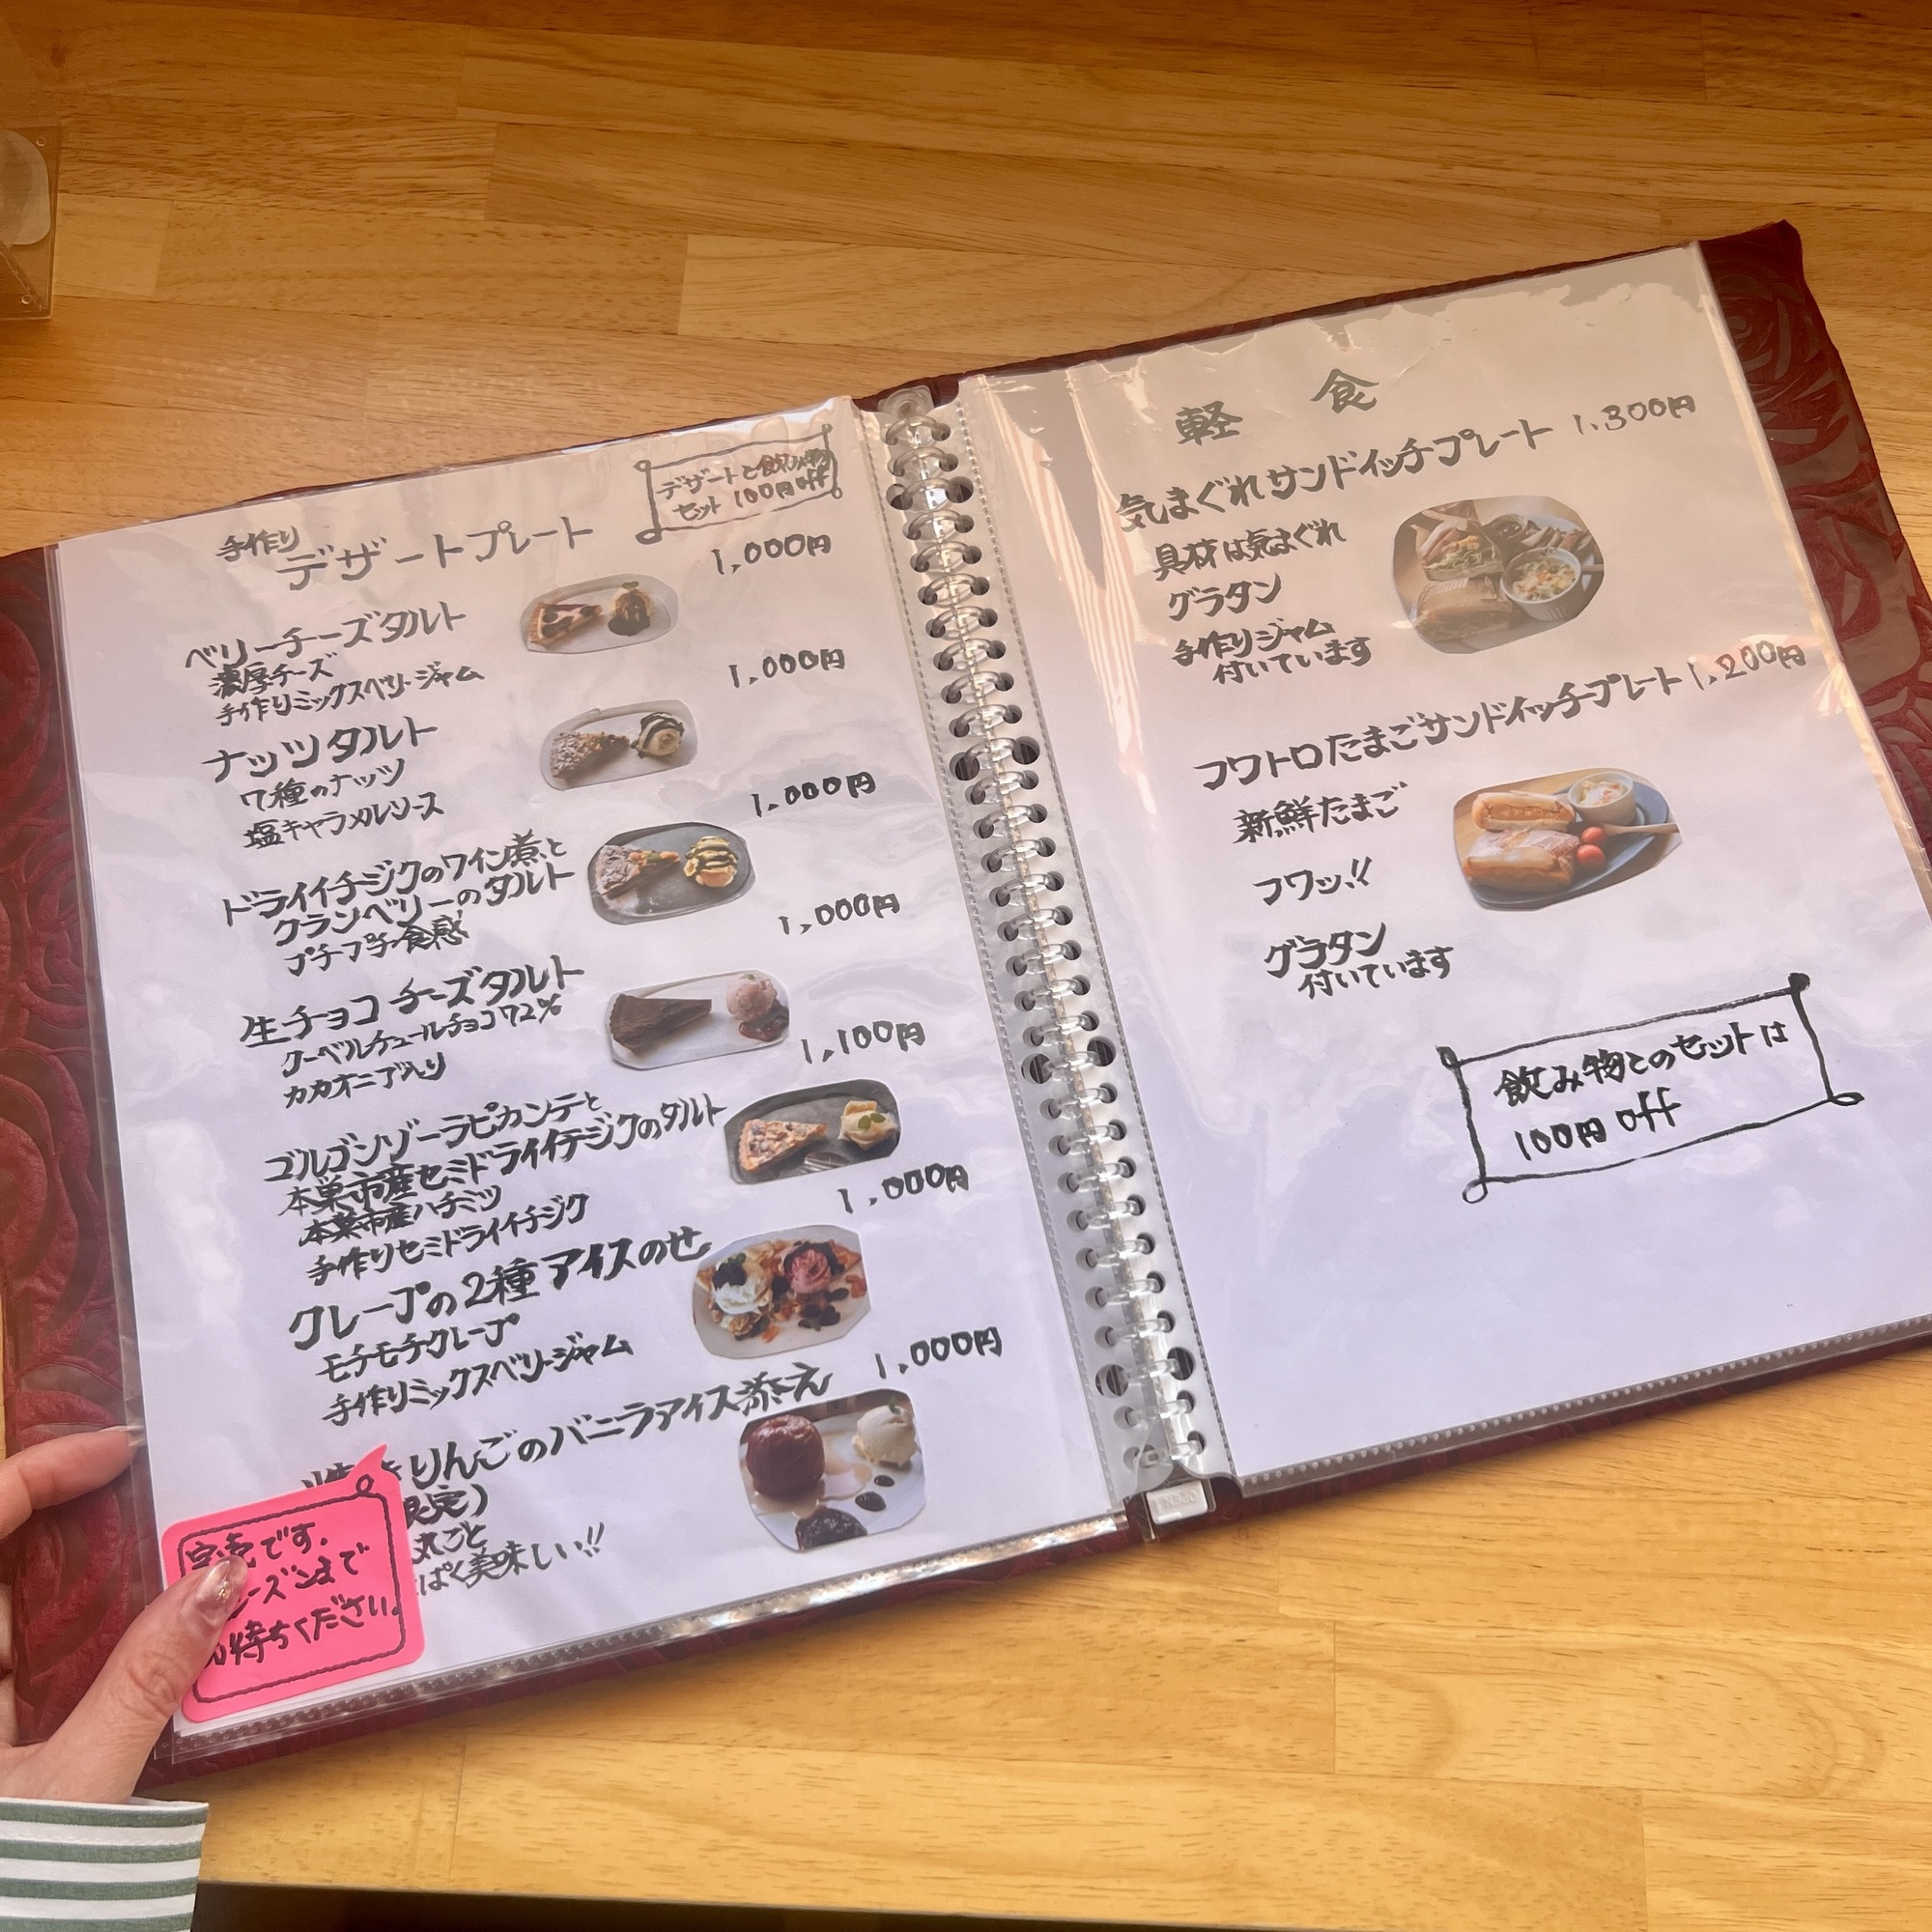 デザートと飲み物
セット 100円off
手作り
デザートプレート
ベリーチーズタルト 1,000円
濃厚チーズ
手作りミックスベリージャム
ナッツタルト 1,000円
7種のナッツ
塩キャラメルソース
ドライイチジクのワイン煮と 1,000円
クランベリーのタルト
プチプチ食感
生チョコチーズタルト 1,000円
クーベルチュールチョコ72%
カカオニブ入り
ゴルゴンゾーラピカンテと 1,100円
本巣市産セミドライイチジクのタルト
本巣市産ハチミツ
手作りセミドライイチジク
クレープの2種アイスのせ 1,000円
モチモチクレープ
手作りミックスベリージャム
りんごのバニラアイス添え 1,000円
限定)
丸ごと
ぱく美味しい!!
完売です.
ーズンまで
待ちください.
軽食
気まぐれサンドイッチプレート 1,300円
具材は気まぐれ
グラタン
手作りジャム
付いています
フワトロたまごサンドイッチプレート 1,200円
新鮮たまご
フワッ!!
グラタン
付いています
飲み物とのセットは
100円off